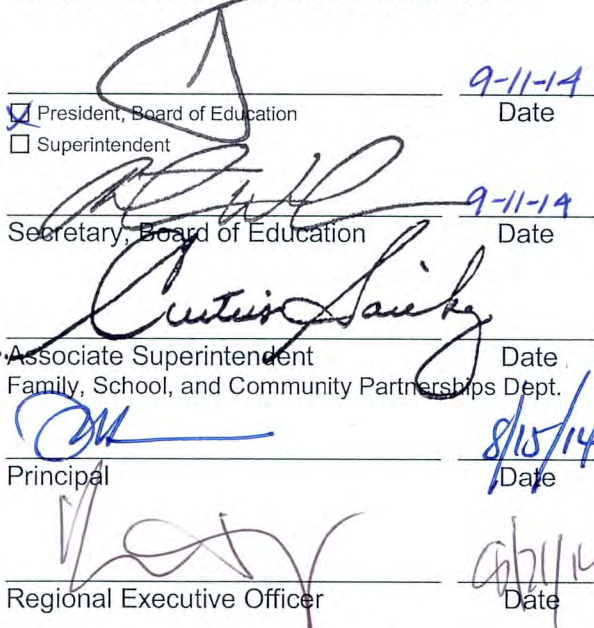 9-11-14
☑ President, Board of Education Date
☐ Superintendent
9-11-14
Secretary, Board of Education Date
Associate Superintendent Date
Family, School, and Community Partnerships Dept.
8/15/14
Principal Date
Regional Executive Officer Date